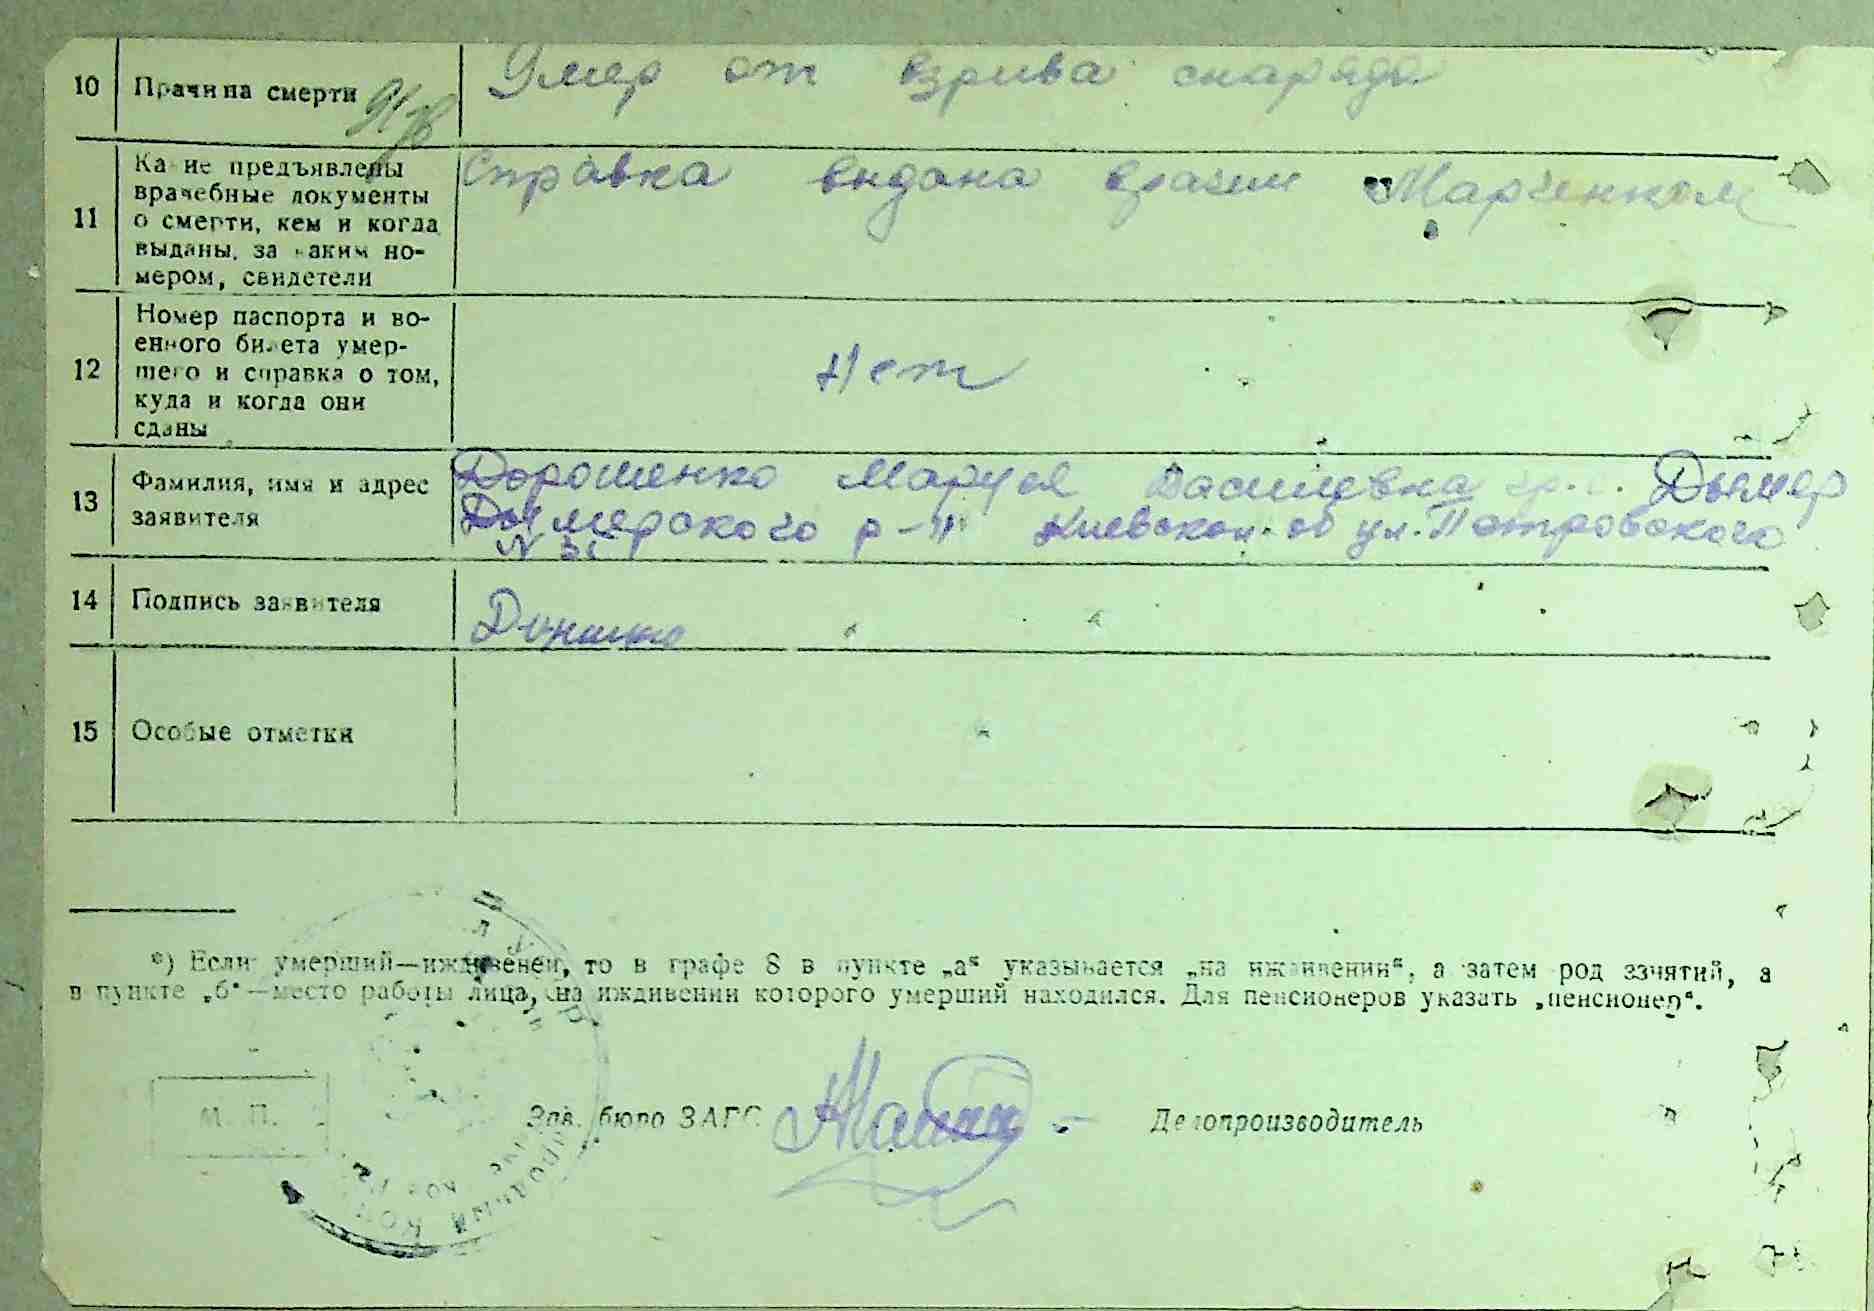 10 Причина смерти Умер от взрива снаряда
11 Какие предъявлены
врачебные документы
о смерти, кем и когда
выданы, за каким но-
мером, свидетели
Справка видана врачем Марченком
12 Номер паспорта и во-
енного билета умер-
шего и справка о том,
куда и когда они
сданы
Нет
13 Фамилия, имя и адрес
заявителя
Дорошенко Маруся Василевна Дымер
Дымерского р-н Киевской об ул. Петровского
№
14 Подпись заявителя
15 Особые отметки
*) Если умерший—иждивенец, то в графе 8 в пункте „а“ указывается „на иждивении“, а затем род занятий, а
в пункте „б“—место работы лица, на иждивении которого умерший находился. Для пенсионеров указать „пенсионер“.
М. П. Зав. бюро ЗАГС Делопроизводитель